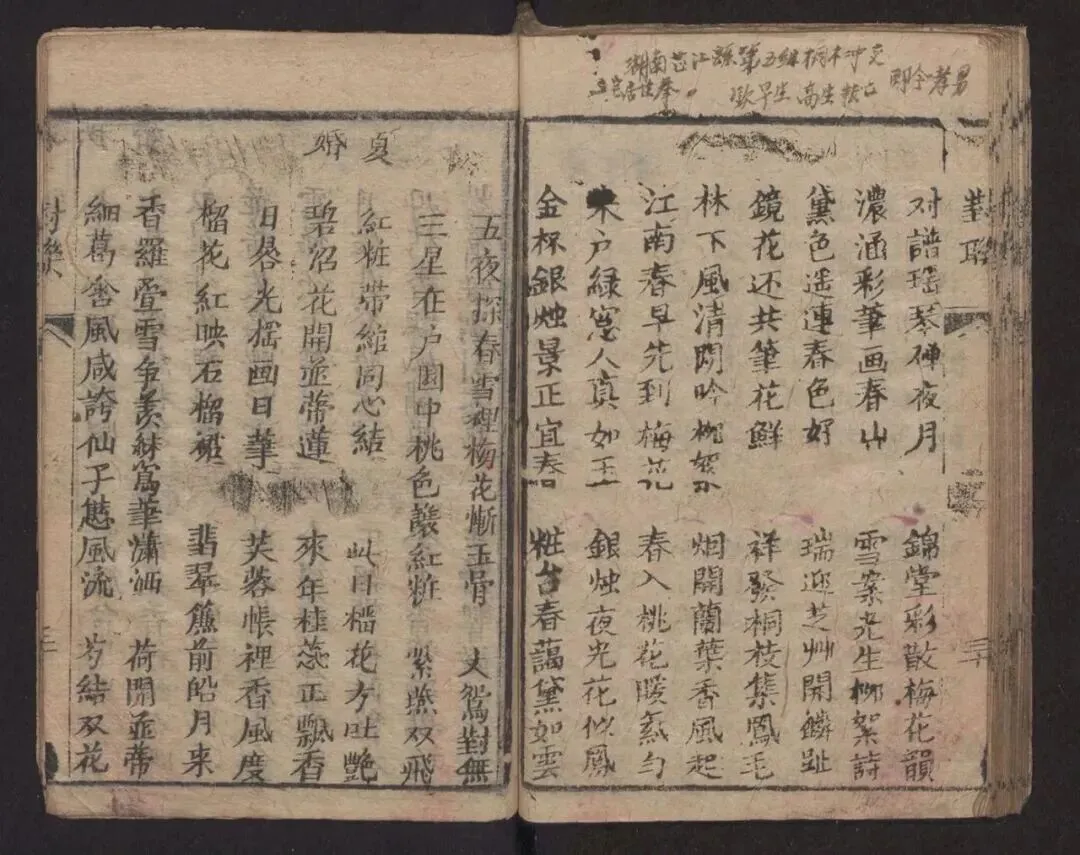 湖南芷江縣第五組桐木冲交
对聯
对譜瑶琴禅夜月 錦堂彩散梅花韻
濃涵彩筆画春山 雪案光生柳絮詩
黛色遥連春色好 瑞迎芝艸開麟趾
鏡花还共筆花鮮 祥發桐枝集鳳毛
林下風清閒吟柳絮 烟開蘭葉香風起
江南春早先到梅花 春入桃花暖氣匀
朱户緑窓人真如玉 銀烛夜光花似鳳
金杯銀烛景正宜春 粧台春藹黛如雲
五夜探春雪裡梅花慚玉骨 丈鴛對無
三星在户園中桃色釀紅粧 紫燕双飛
夏婚
紅粧带綰同心結 此日榴花方吐艷
碧沼花開並蒂蓮 來年桂蕊正飄香
日晷光摇画日華 芙蓉帳裡香風度
榴花紅映石榴裙 翡翠簾前皓月来
香羅叠雪争羡 華瀟洒 荷開並蒂
細葛含風咸誇仙子 風流 芍結双花